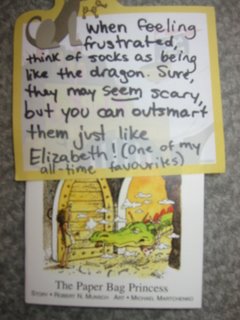 when feeling
frustrated,
think of socks as being
like the dragon. Sure,
they may seem scary,
but you can outsmart
them just like
Elizabeth! (One of my
all-time favourites)
The Paper Bag Princess
STORY • ROBERT N. MUNSCH ART • MICHAEL MARTCHENKO